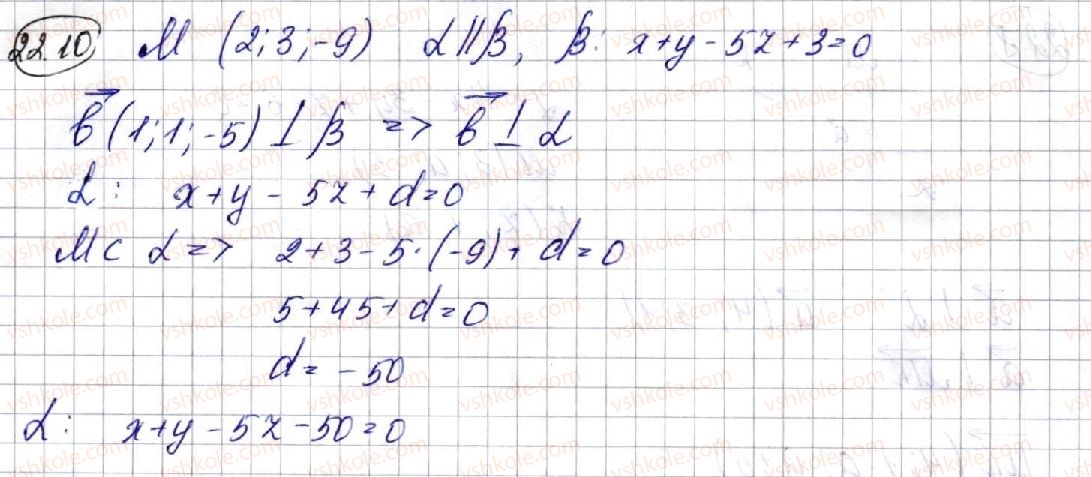 22.10 M (2; 3; -9) α∥β, β: x+y-5z+3=0
b⃗(1; 1; -5) ⊥ β => b⃗ ⊥ α
α: x+y-5z+d=0
M⊂ α => 2+3-5·(-9)+d=0
5+45+d=0
d=-50
α: x+y-5z-50=0